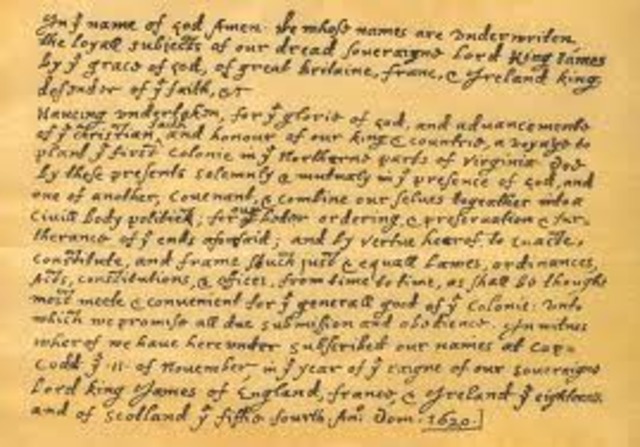 In yᵉ name of god Amen. We whose names are vnderwriten,
the loyall subjects of our dread soveraigne Lord King James
by yᵉ grace of god, of great Britaine, franc, & Ireland king,
defender of yᵉ faith, &c
Haveing vndertaken, for yᵉ glorie of god, and advancemente
of yᵉ christian faith and honour of our king & countrie, a voyage to
plant yᵉ first colonie in yᵉ Northerne parts of Virginia Doe
by these presents solemnly & mutualy in yᵉ presence of god, and
one of another, covenant, & combine our selves togeather into a
Civill body politick; for our better ordering, & preservation & fur=
therance of yᵉ ends aforesaid; and by vertue hearof to enacte,
constitute, and frame shuch just & equall Lawes, ordinances,
Acts, constitutions, & offices, from time to time, as shall be thought
most meete & convenient for yᵉ generall good of yᵉ colonie: vnto
which we promise all due submission and obedience. In witnes
wherof we have herevnder subscribed our names at Cap=
Codd yᵉ ·11· of November, in yᵉ year of yᵉ raigne of our soveraigne
Lord king James of England, franc, & Ireland yᵉ eighteenth
and of Scotland yᵉ fiftie fourth. Anº Dom. 1620.]